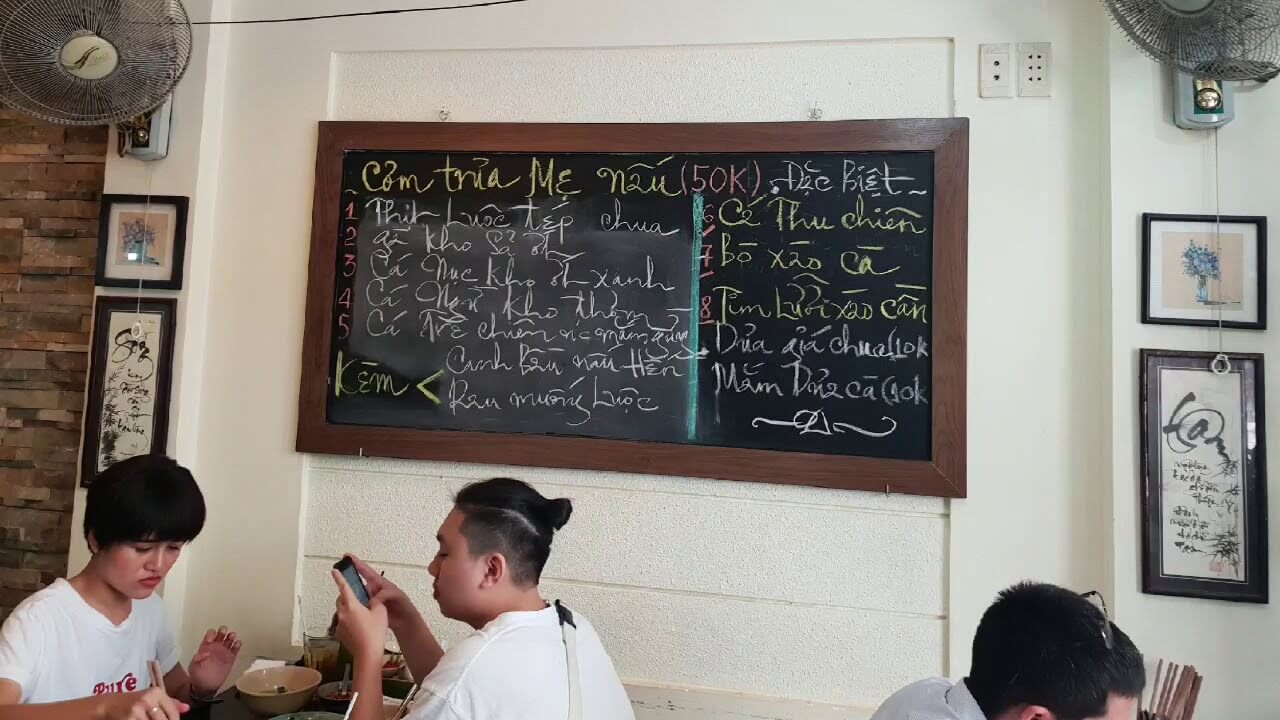 Cơm trưa Mẹ nấu (50K). Đặc Biệt
1 Thịt Luộc tép chua
2 gà kho Sả ớt
3 Cá Nục kho ớt xanh
4 Cá Ngừ kho thơm
5 Cá Trê chiên nc mắm gừng
Kèm < Canh Bầu nấu Hến
Rau muống Luộc
6 Cá Thu chiên
7 Bò xào cà
8 Tim Lưỡi xào cần
Dưa giá chua (10k
Mắm Dưa cà (10k
Pure